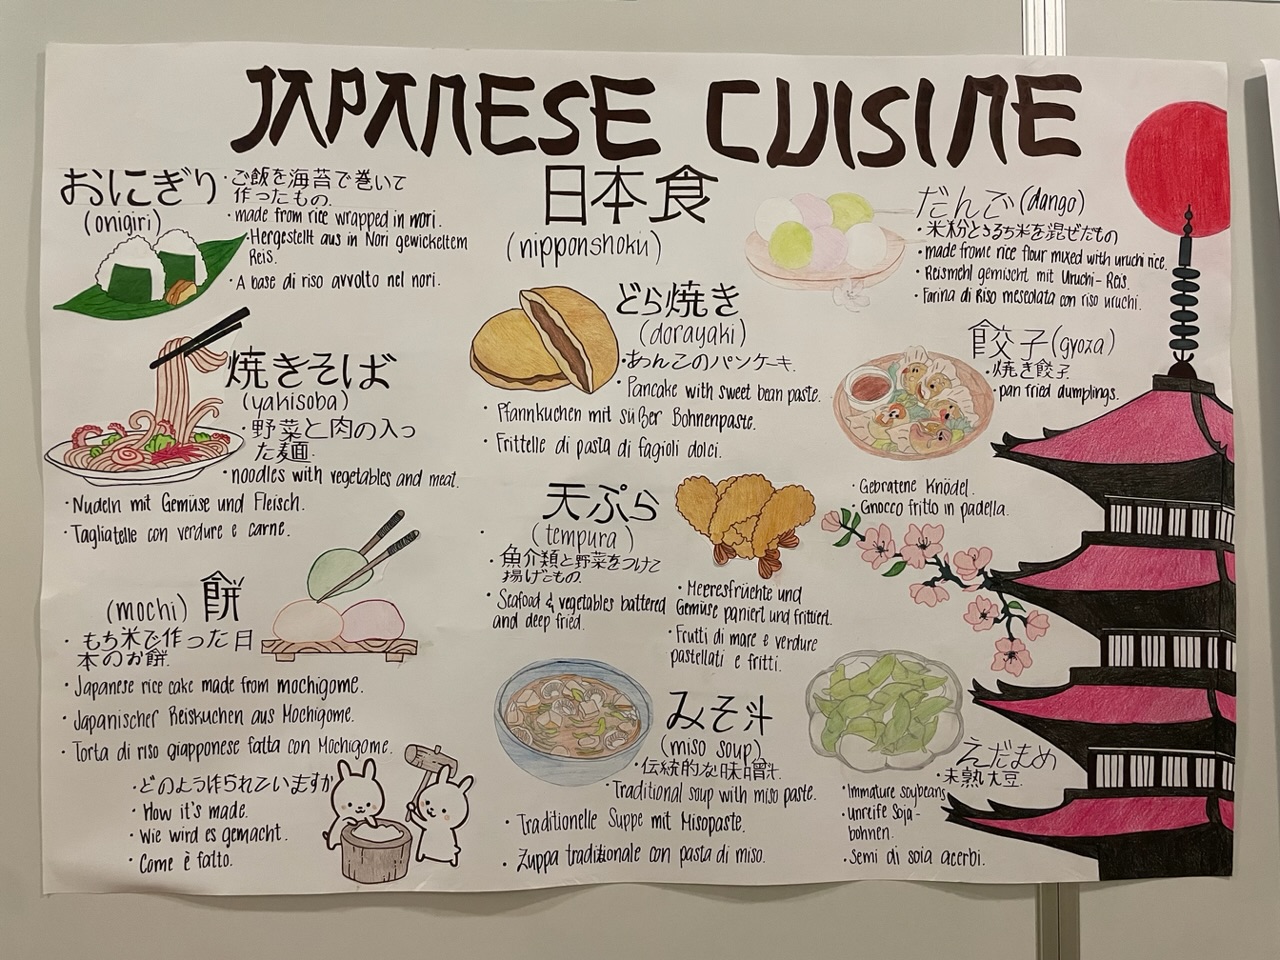 JAPANESE CUISINE
日本食
(nipponshoku)
おにぎり
(onigiri)
・ご飯を海苔で巻いて
作ったもの.
・made from rice wrapped in nori.
・Hergestellt aus in Nori gewickeltem
Reis.
・A base di riso avvolto nel nori.
焼きそば
(yakisoba)
・野菜と肉の入っ
た麺.
・noodles with vegetables and meat.
・Nudeln mit Gemüse und Fleisch.
・Tagliatelle con verdure e carne.
(mochi) 餅
・もち米で作った日
本のお餅.
・Japanese rice cake made from mochigome.
・Japanischer Reiskuchen aus Mochigome.
・Torta di riso giapponese fatta con Mochigome.
・どのよう作られていますか
・How it's made.
・Wie wird es gemacht.
・Come è fatto.
どら焼き
(dorayaki)
・あんこのパンケーキ.
・Pancake with sweet bean paste.
・Pfannkuchen mit süßer Bohnenpaste.
・Frittelle di pasta di fagioli dolci.
天ぷら
(tempura)
・魚介類と野菜をつけて
揚げたもの.
・Seafood & vegetables battered
and deep fried.
・Meeresfrüchte und
Gemüse paniert und frittiert.
・Frutti di mare e verdure
pastellati e fritti.
みそ汁
(miso soup)
・伝統的な味噌汁.
・Traditional soup with miso paste.
・Traditionelle Suppe mit Misopaste.
・Zuppa traditionale con pasta di miso.
だんご (dango)
・米粉とうるち米を混ぜたもの
・made frome rice flour mixed with uruchi rice.
・Reismehl gemischt mit Uruchi-Reis.
・Farina di Riso mescolata con riso uruchi.
餃子 (gyoza)
・焼き餃子.
・pan fried dumplings.
・Gebratene Knödel.
・Gnocco fritto in padella.
えだまめ
・未熟大豆.
・Immature soybeans
・unreife Soja-
bohnen.
・Semi di soia acerbi.